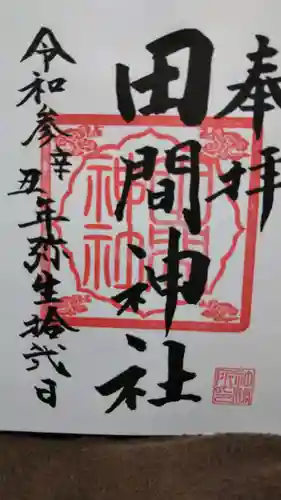 奉拝
田間神社
令和参辛丑年弥生拾弐日
田間神社